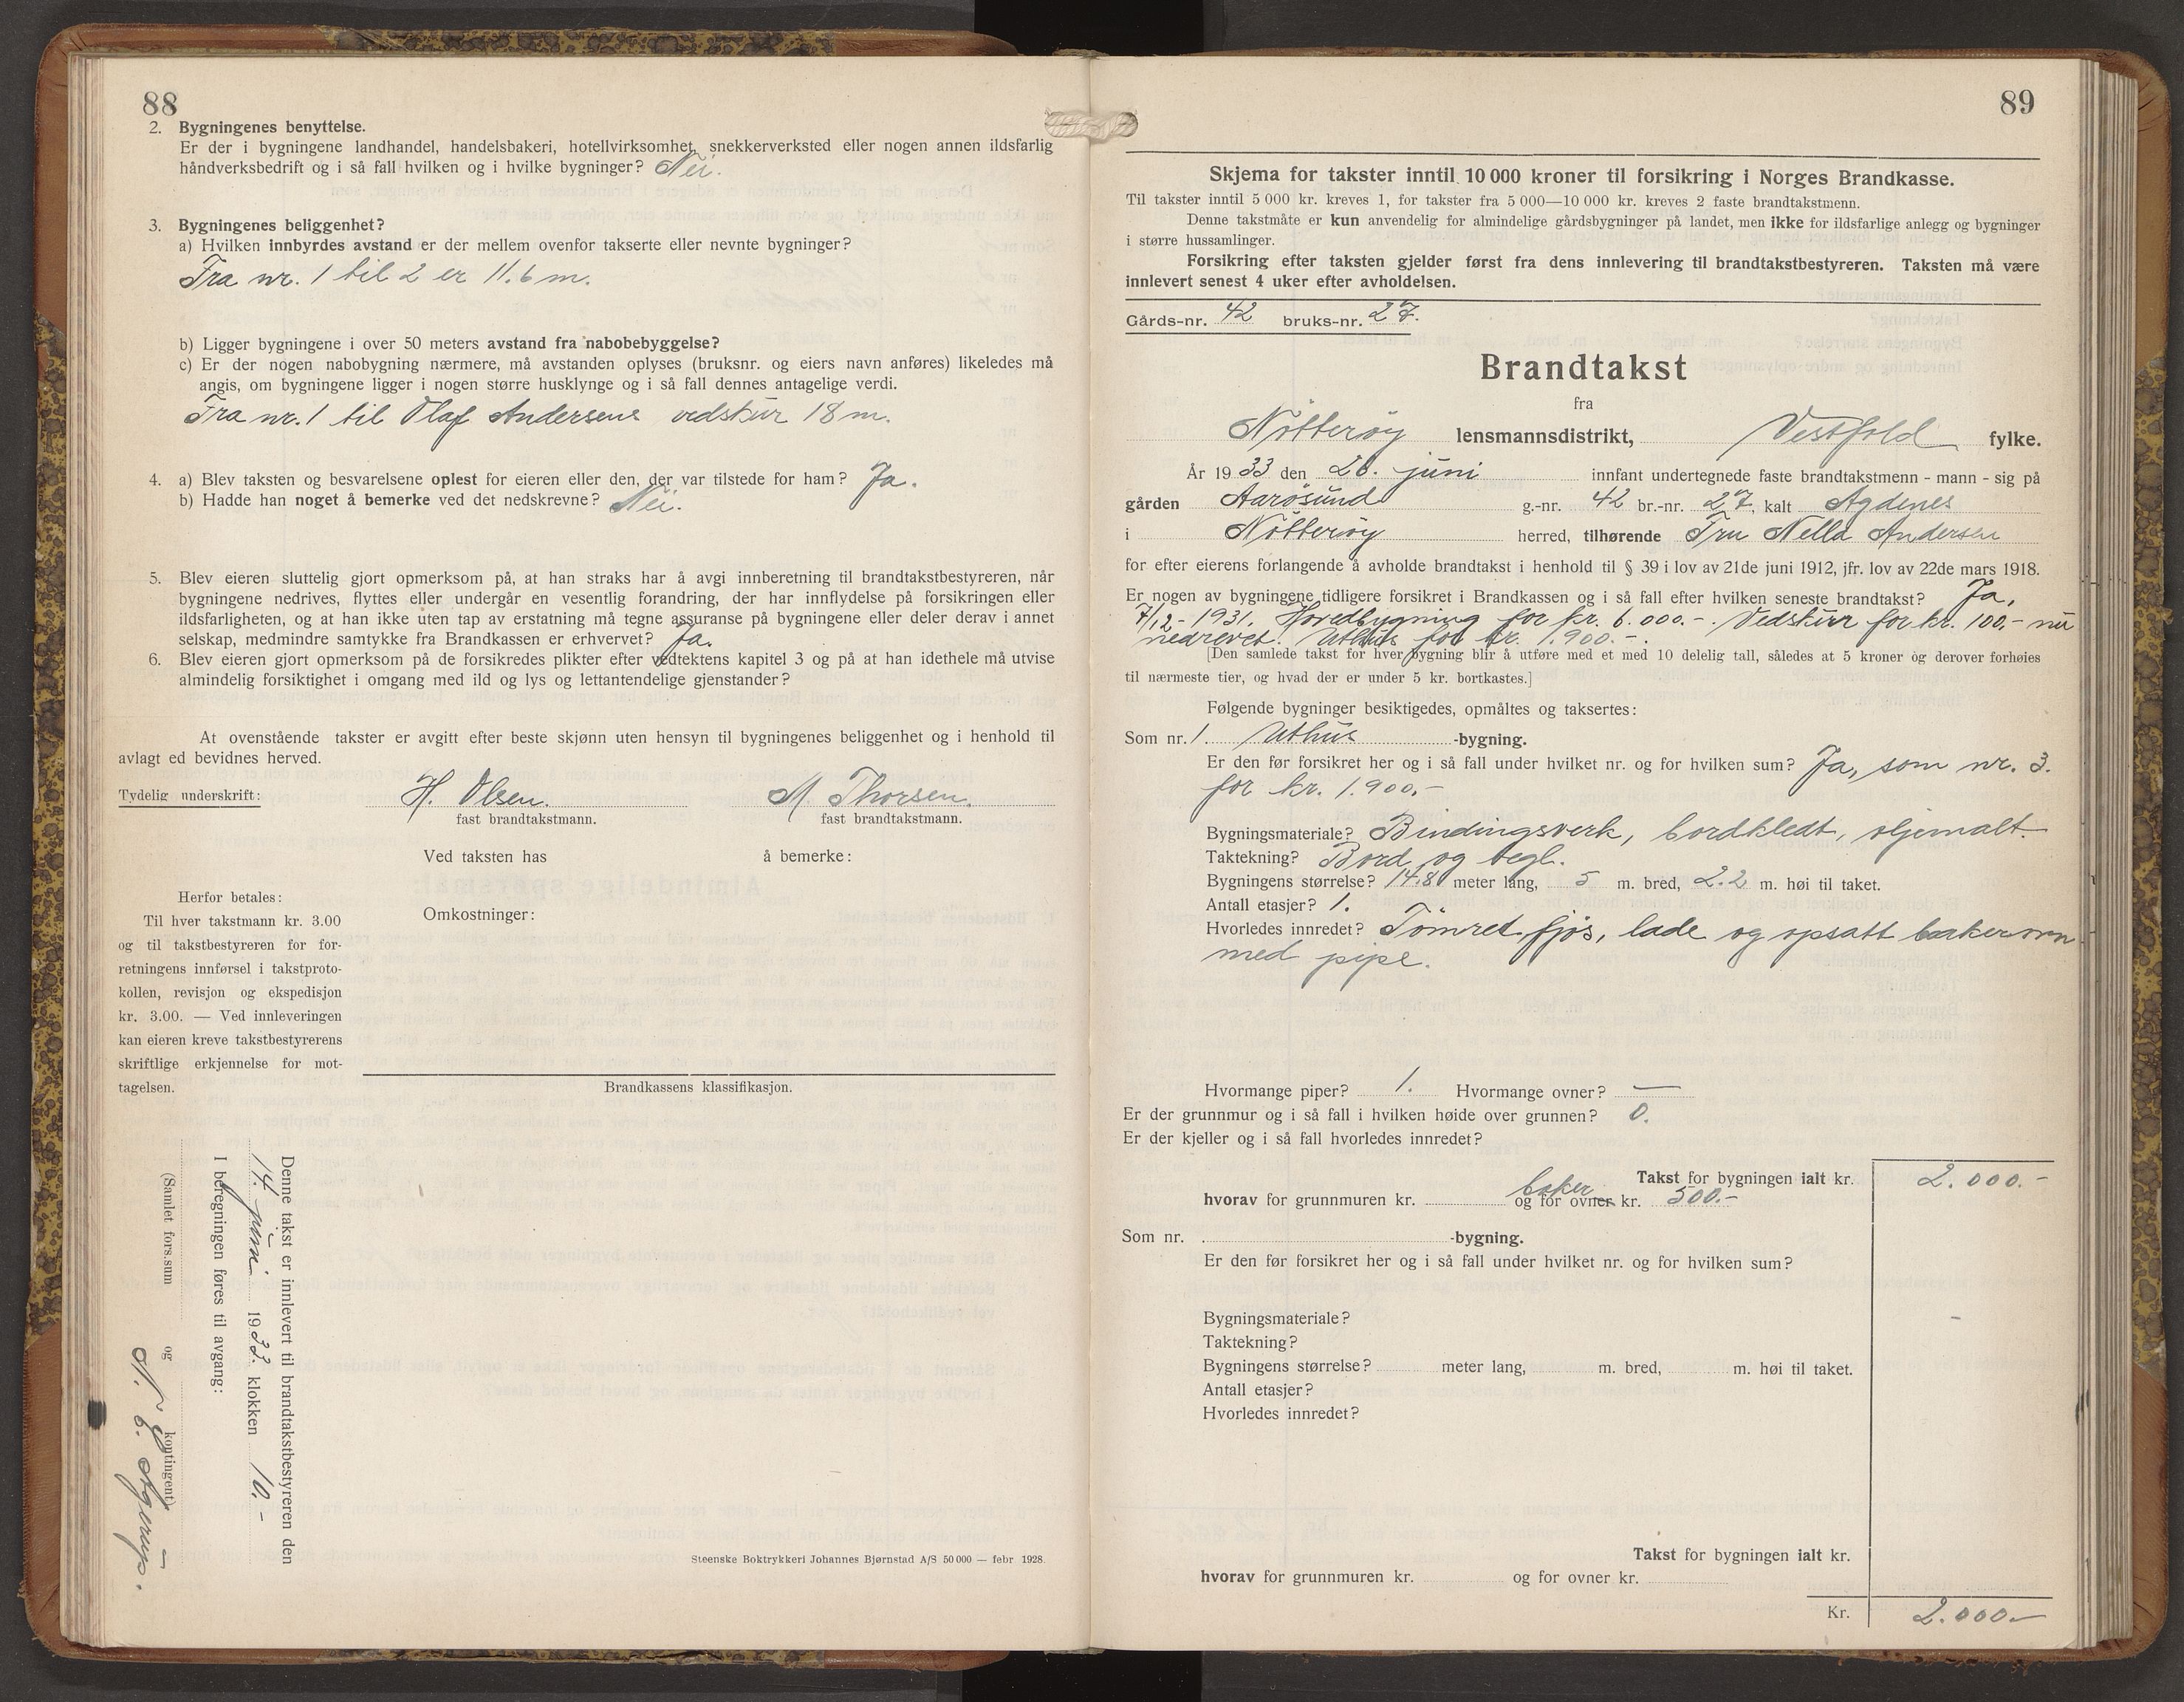 88
2. Bygningenes benyttelse.
Er der i bygningene landhandel, handelsbakeri, hotellvirksomhet, snekkerverksted eller nogen annen ildsfarlig
håndverksbedrift og i så fall hvilken og i hvilke bygninger? Nei.
3. Bygningenes beliggenhet?
a) Hvilken innbyrdes avstand er der mellem ovenfor takserte eller nevnte bygninger?
Fra nr. 1 til 2 er 11.6 m.
b) Ligger bygningene i over 50 meters avstand fra nabobebyggelse?
c) Er der nogen nabobygning nærmere, må avstanden oplyses (bruksnr. og eiers navn anføres) likeledes må
angis, om bygningene ligger i nogen større husklynge og i så fall dennes antagelige verdi.
Fra nr. 1 til Olaf Andersens vedskur 18 m.
4. a) Blev taksten og besvarelsene oplest for eieren eller den, der var tilstede for ham? Ja.
b) Hadde han noget å bemerke ved det nedskrevne? Nei.
5. Blev eieren sluttelig gjort opmerksom på, at han straks har å avgi innberetning til brandtakstbestyreren, når
bygningene nedrives, flyttes eller undergår en vesentlig forandring, der har innflydelse på forsikringen eller
ildsfarligheten, og at han ikke uten tap av erstatning må tegne assuranse på bygningene eller deler derav i annet
selskap, medmindre samtykke fra Brandkassen er erhvervet? Ja.
6. Blev eieren gjort opmerksom på de forsikredes plikter efter vedtektens kapitel 3 og på at han idethele må utvise
almindelig forsiktighet i omgang med ild og lys og lettantendelige gjenstander?
At ovenstående takster er avgitt efter beste skjønn uten hensyn til bygningenes beliggenhet og i henhold til
avlagt ed bevidnes herved.
Tydelig underskrift: H. Olsen. M. Thorsen.
fast brandtakstmann. fast brandtakstmann.
Ved taksten has å bemerke:
Herfor betales:
Til hver takstmann kr. 3.00
og til takstbestyreren for for-
retningens innførsel i takstproto-
kollen, revisjon og ekspedisjon
kr. 3.00. — Ved innleveringen
kan eieren kreve takstbestyrerens
skriftlige erkjennelse for mot-
tagelsen.
Omkostninger:
Brandkassens klassifikasjon.
Denne takst er innlevert til brandtakstbestyreren den
14. juni 1933. klokken 10.-
I beregningen føres til avgang:
(Samlet fors.sum og kontingent)
Agerup.
Steenske Boktrykkeri Johannes Bjørnstad A/S 50 000 — febr 1928.
89
Skjema for takster inntil 10 000 kroner til forsikring i Norges Brandkasse.
Til takster inntil 5 000 kr. kreves 1, for takster fra 5 000—10 000 kr. kreves 2 faste brandtakstmenn.
Denne takstmåte er kun anvendelig for almindelige gårdsbygninger på landet, men ikke for ildsfarlige anlegg og bygninger
i større hussamlinger.
Forsikring efter taksten gjelder først fra dens innlevering til brandtakstbestyreren. Taksten må være
innlevert senest 4 uker efter avholdelsen.
Gårds-nr. 42 bruks-nr. 27.
Brandtakst
fra
Nötteröy lensmannsdistrikt, Vestfold fylke.
År 1933 den juni innfant undertegnede faste brandtakstmenn - mann - sig på
gården Aarösund g.-nr. 42 br.-nr. 27, kalt Agdenes
i Nötteröy herred, tilhørende Fru Nella Andersen
for efter eierens forlangende å avholde brandtakst i henhold til § 39 i lov av 21de juni 1912, jfr. lov av 22de mars 1918.
Er nogen av bygningene tidligere forsikret i Brandkassen og i så fall efter hvilken seneste brandtakst? Ja,
7/12-1931. Hovedbygning for kr. 6.000.-. Vedskur for kr. 100.- nu
nedrevet. Uthus for kr. 1.900.-.
[Den samlede takst for hver bygning blir å utføre med et med 10 delelig tall, således at 5 kroner og derover forhøies
til nærmeste tier, og hvad der er under 5 kr. bortkastes.]
Følgende bygninger besiktigedes, opmåltes og taksertes:
Som nr. 1. Uthus -bygning.
Er den før forsikret her og i så fall under hvilket nr. og for hvilken sum? Ja, som nr. 3.
for kr. 1.900.-
Bygningsmateriale? Bindingsverk, bordkledt, oljemalt.
Taktekning? Bord og tegl.
Bygningens størrelse? 14.8 meter lang, 5 m. bred, 2.2 m. høi til taket.
Antall etasjer? 1.
Hvorledes innredet? Tömret fjös, lade og opsatt bakerovn
med pipe.
Hvormange piper? 1. Hvormange ovner? —
Er der grunnmur og i så fall i hvilken høide over grunnen? 0.
Er der kjeller og i så fall hvorledes innredet?
Takst for bygningen ialt kr. 2.000.-
hvorav for grunnmuren kr. og for baker ovner kr. 500.-
Som nr. -bygning.
Er den før forsikret her og i så fall under hvilket nr. og for hvilken sum?
Bygningsmateriale?
Taktekning?
Bygningens størrelse? meter lang, m. bred, m. høi til taket.
Antall etasjer?
Hvorledes innredet?
Takst for bygningen ialt kr.
hvorav for grunnmuren kr. og for ovner kr.
Kr. 2.000.-